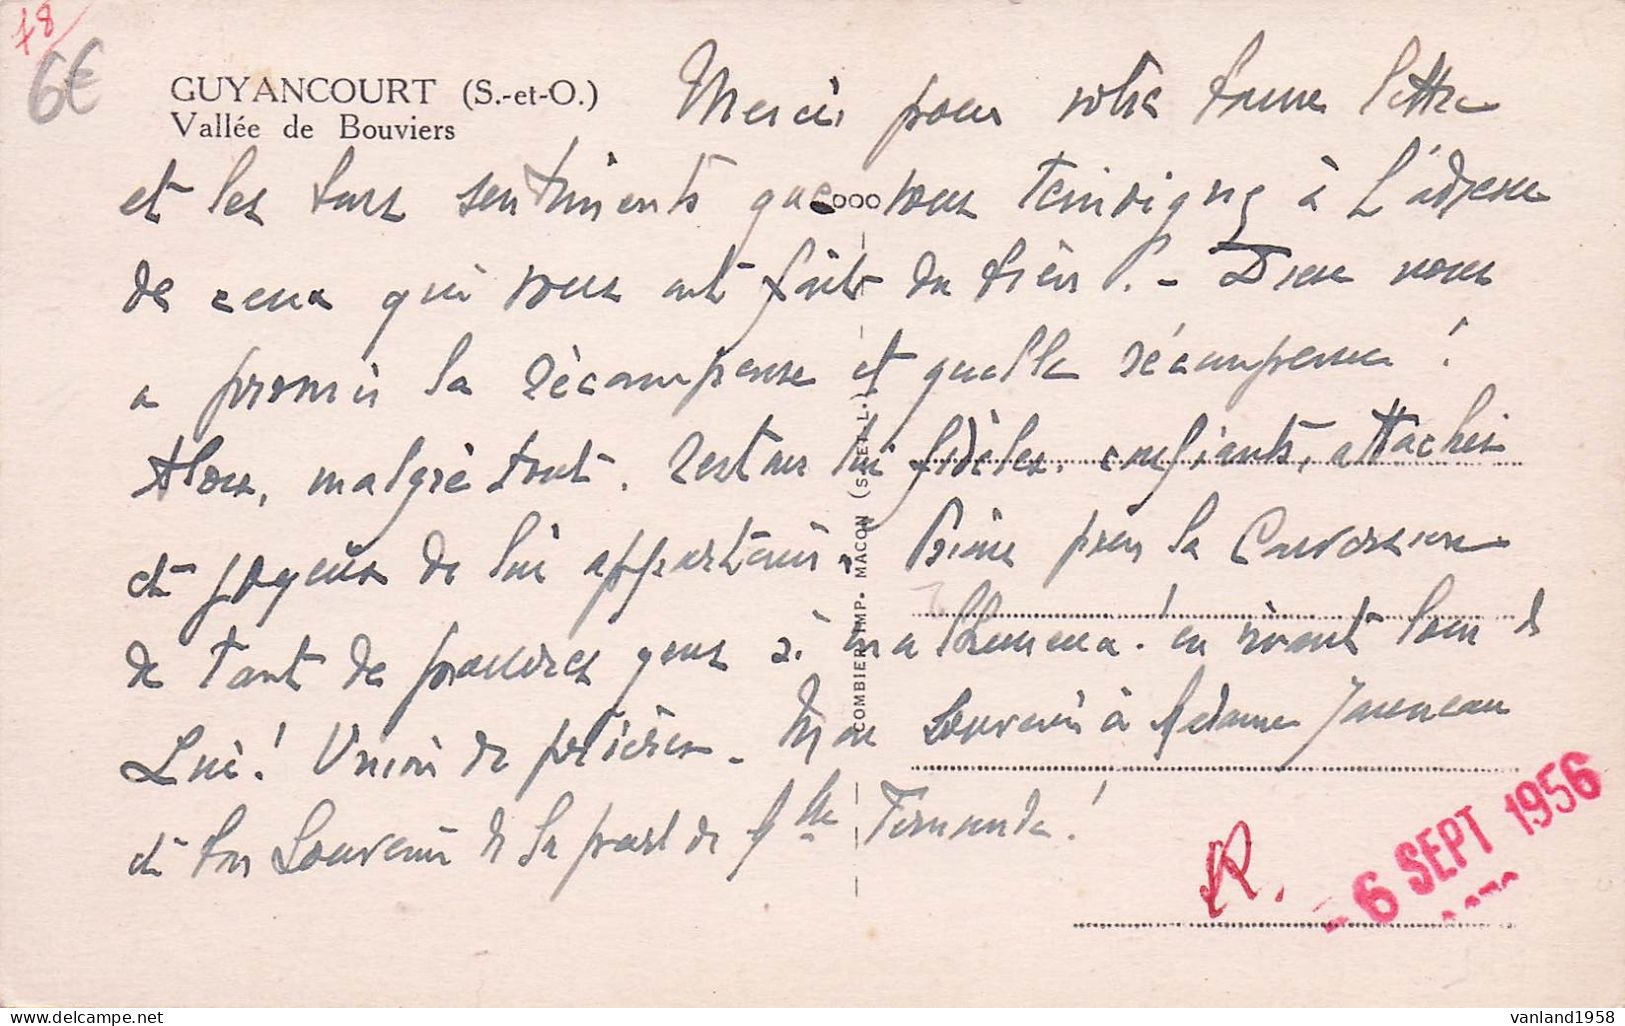 78
6€
GUYANCOURT (S.-et-O.)
Vallée de Bouviers
Merci pour votre bonne lettre
et les bons sentiments que vous témoignez à l'adresse
de ceux qui vous ont fait du bien ! - Dieu nous
a promis la récompense et quelle récompense !
Alors, malgré tout, restons lui fidèles, confiants, attachés
et joyeux de lui appartenir. Prions pour la Conversion
de tant de pauvres gens si malheureux ! en vivant loin de
Lui ! Union de prières - Mon souvenir à Madame Jauneau
et bon souvenir de la part de Mlle Fernande !
COMBIER IMP. MACON (S.-ET-L.)
R.
- 6 SEPT 1956
vanland1958